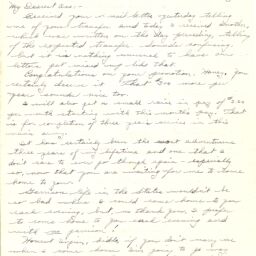 My Dearest Ava:-
Received your v-mail letter yesterday telling
me of your transfer and today I received another,
which was written on the day preceding, telling
of the expected transfer. Sounds confusing,
but it is nothing unusual to have the
letters get mixed up like that.
Congratulations on your promotion. Honey, you
certainly deserve it. That $200 more per
year sounds nice too.
I will also get a small raise in pay of
per month starting with this month's pay. That
is for completion of three years service in this
man's army.
It has certainly been the most adventurous
three years of my lifetime and one that I
don't care to ever go through again - especially
so, now that you are waiting for me to come
home to you.
Garrison life in the States wouldn't be
so bad where I could come home to you
each evening, but no thank you, I prefer
to come home to you each evening and
with passion!
Honest Injun, kiddo, if you don't marry me
when I come home I'm going to go away